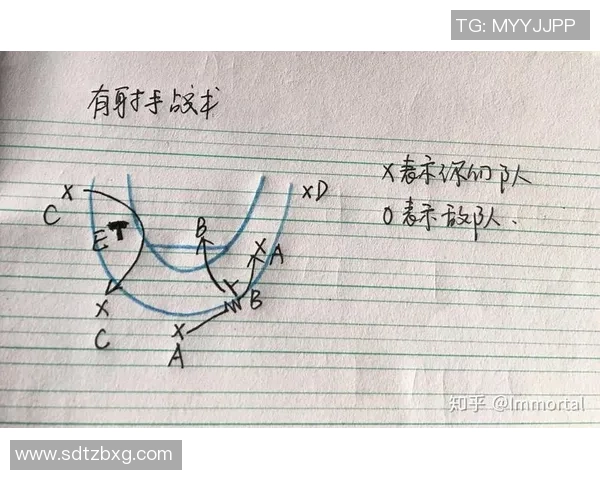 TG: MYYJJPP
有射手战术
X表示你的队
O表示敌队.
X
C
E
X
C
B
X
A
B
X
A
XD
知乎 @Immortal
www.sdtzbxg.com